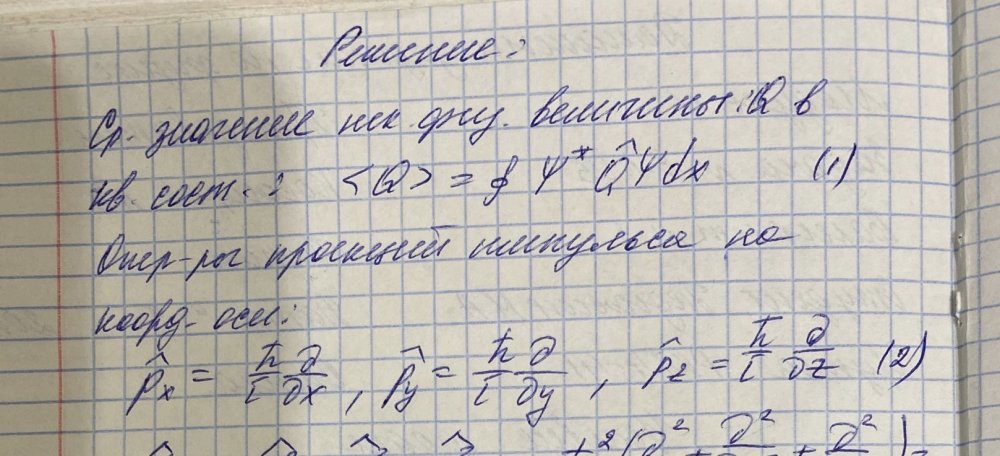 Решение:
Ср. значение нек. физ. величины Q в
кв. сост.: <Q> = ∮ Ψ* Q̂ Ψ dx (1)
Опер-ры проекций импульса на
коорд. оси:
p̂x = ħ/i ∂/∂x, p̂y = ħ/i ∂/∂y, p̂z = ħ/i ∂/∂z (2)